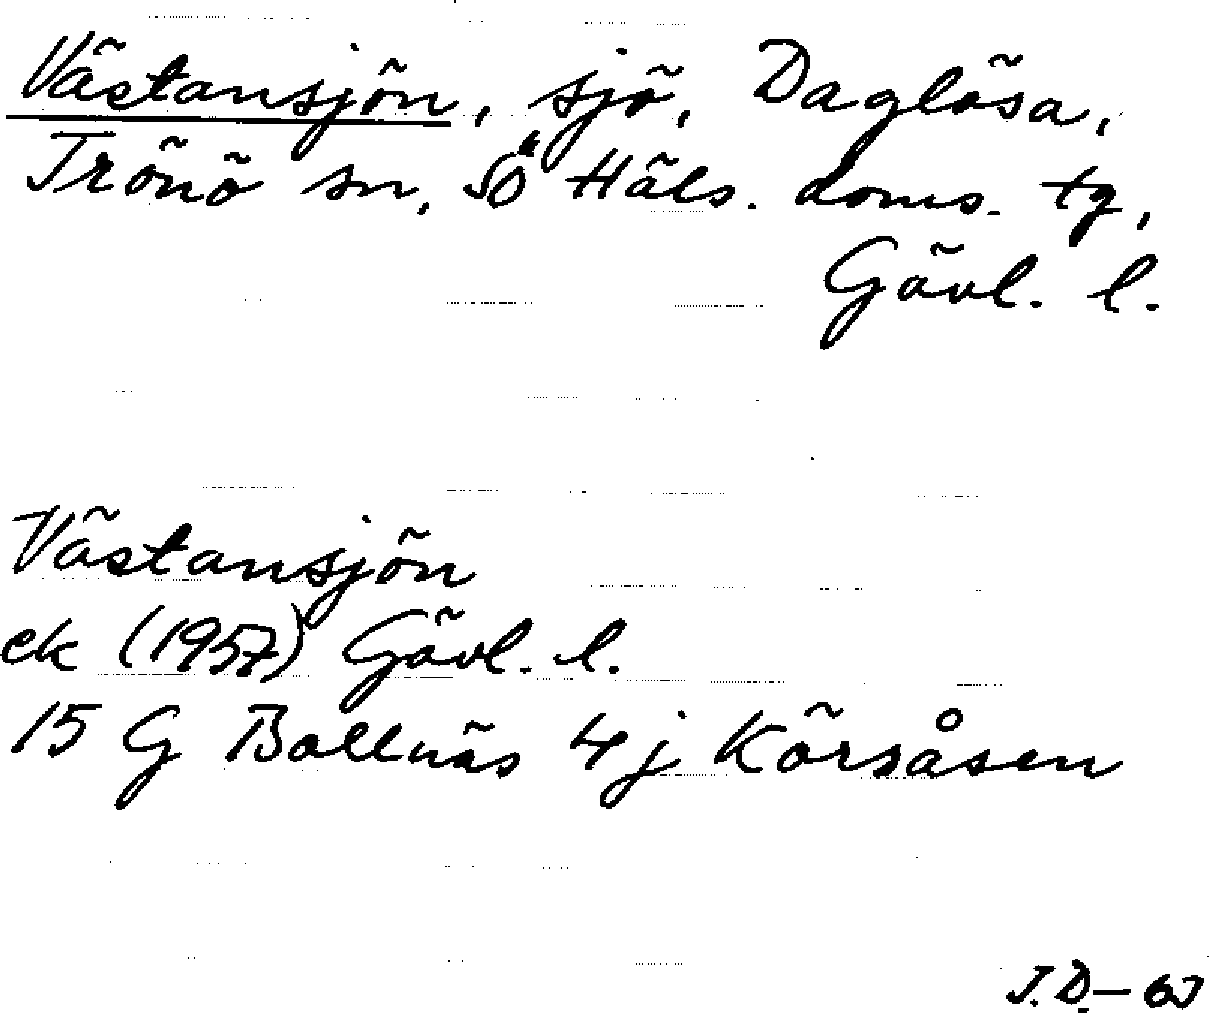 Västansjön, sjö, Daglösa,
Trönö sn, Sö Häls. doms. tg,
Gävl. l.
Västansjön
ek (1957) Gävl. l.
15 G Bollnäs 4j Körsåsen
J.D.-